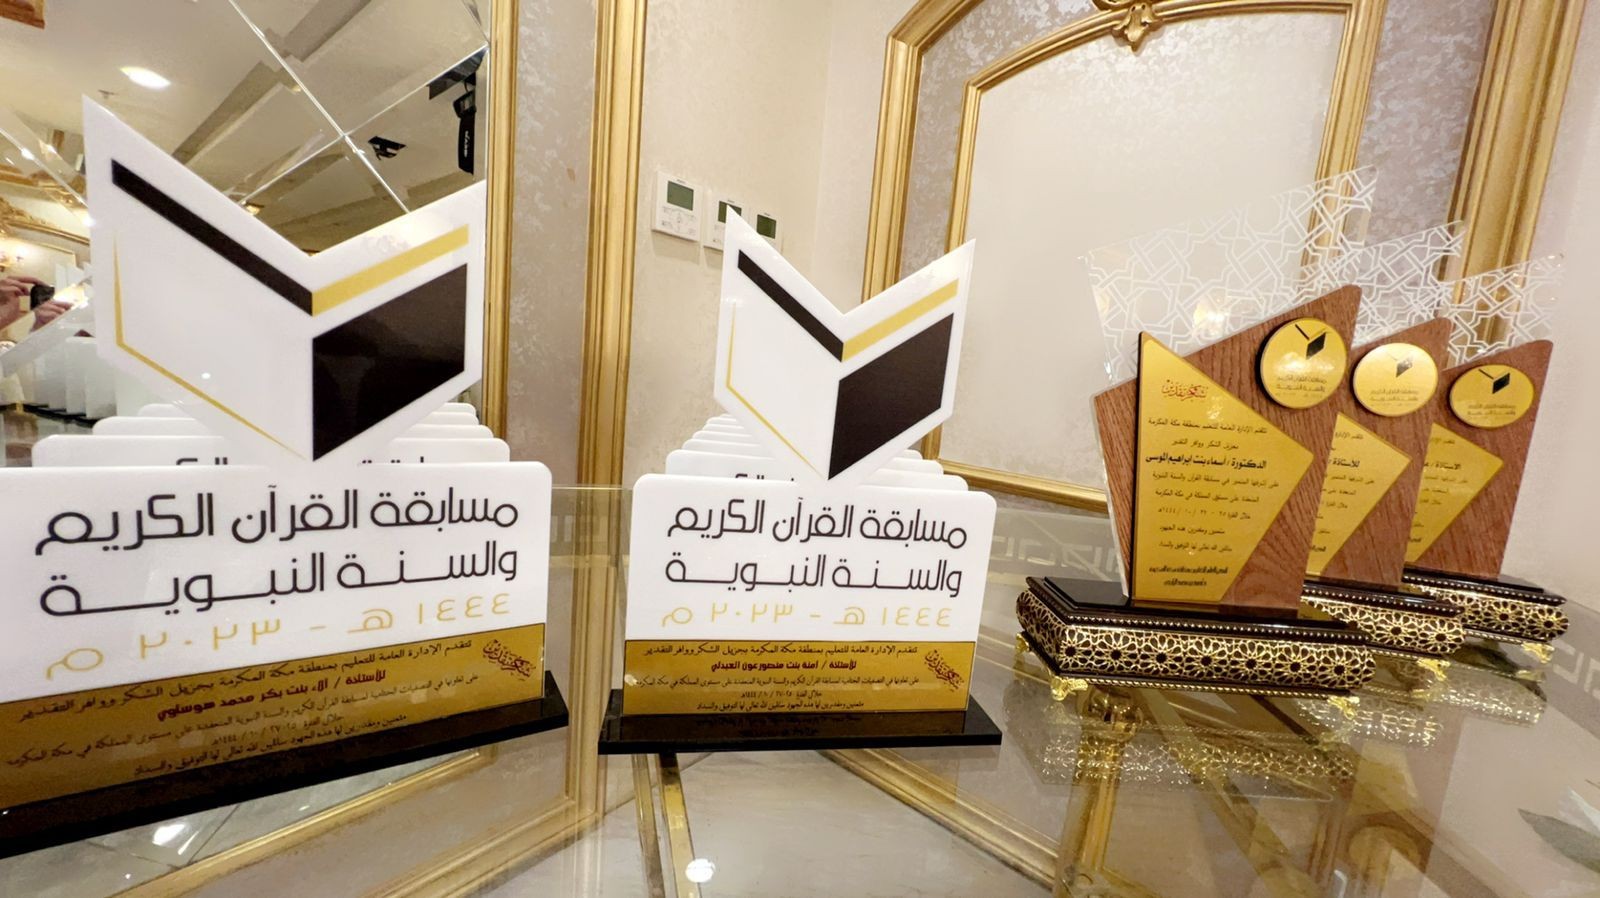 مسابقة القرآن الكريم
والسنة النبوية
١٤٤٤ هـ - ٢٠٢٣ م
شكر وتقدير
تتقدم الإدارة العامة للتعليم بمنطقة مكة المكرمة بجزيل الشكر ووافر التقدير
للأستاذة / آلاء بنت بكر محمد هوساوي
على تعاونها في التصفيات الختامية لمسابقة القرآن الكريم والسنة النبوية المنعقدة على مستوى المملكة في مكة المكرمة
خلال الفترة ٢٥-٢٧ / ١٠ / ١٤٤٤هـ
مثمنين ومقدرين لها هذه الجهود سائلين الله تعالى لها التوفيق والسداد
مسابقة القرآن الكريم
والسنة النبوية
١٤٤٤ هـ - ٢٠٢٣ م
شكر وتقدير
تتقدم الإدارة العامة للتعليم بمنطقة مكة المكرمة بجزيل الشكر ووافر التقدير
للأستاذة / آمنة بنت منصور عون العبدلي
على تعاونها في التصفيات الختامية لمسابقة القرآن الكريم والسنة النبوية المنعقدة على مستوى المملكة في مكة المكرمة
خلال الفترة ٢٥-٢٧ / ١٠ / ١٤٤٤هـ
مثمنين ومقدرين لها هذه الجهود سائلين الله تعالى لها التوفيق والسداد
مسابقة القرآن الكريم
والسنة النبوية
شكر وتقدير
تتقدم الإدارة العامة للتعليم بمنطقة مكة المكرمة
بجزيل الشكر ووافر التقدير
الدكتورة / أسماء بنت إبراهيم الموسى
على إشرافها المتميز في مسابقة القرآن والسنة النبوية
المنعقدة على مستوى المملكة في مكة المكرمة
مثمنين ومقدرين هذه الجهود
سائلين الله تعالى لها التوفيق والسداد
مسابقة القرآن الكريم
والسنة النبوية
تتقدم الإدارة
للأستاذة /
مسابقة القرآن الكريم
والسنة النبوية